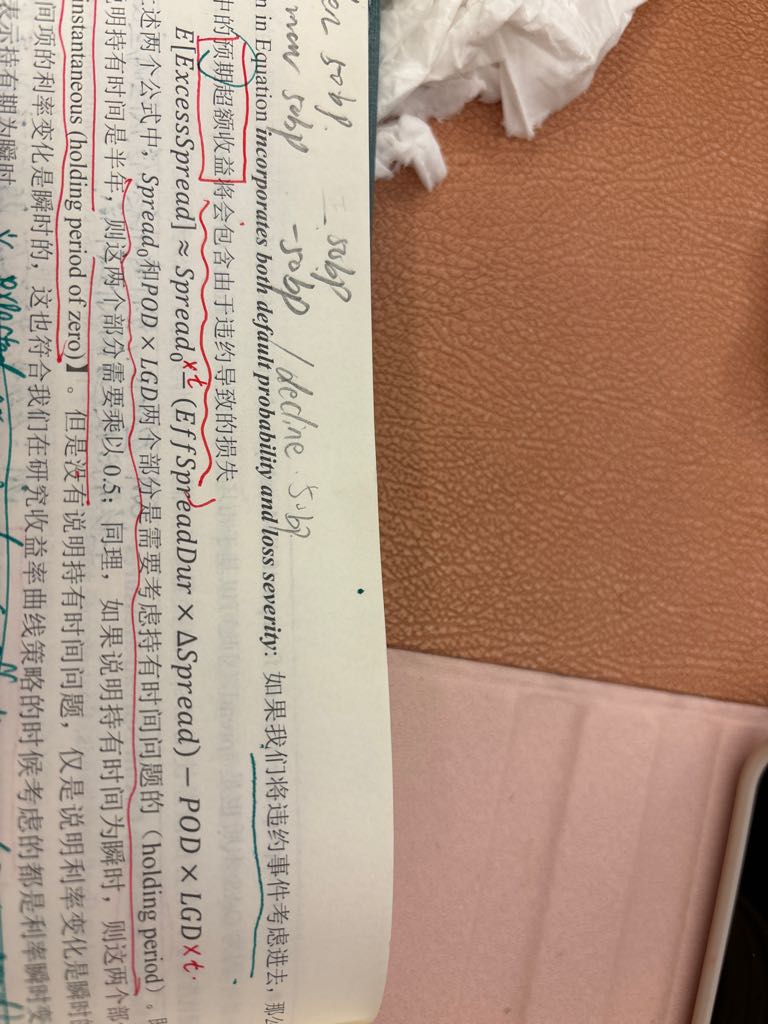 50bp.
mow 50bp -50bp / decline 50bp
= 50bp
n in Equation incorporates both default probability and loss severity: 如果我们将违约事件考虑进去，那么
中的预期超额收益将会包含由于违约导致的损失
E[ExcessSpread] ≈ Spread₀ ×t − (EffSpreadDur × ΔSpread) − POD × LGD ×t.
述两个公式中，Spread₀和POD × LGD两个部分是需要考虑持有时间问题的（holding period）。
明持有时间是半年，则这两个部分需要乘以 0.5；同理，如果说明持有时间为瞬时，则这两个部
instantaneous (holding period of zero)】。但是没有说明持有时间问题，仅是说明利率变化是瞬时的
间项的利率变化是瞬时的，这也符合我们在研究收益率曲线策略的时候考虑的都是利率瞬时变
表示持有期为瞬时
expected